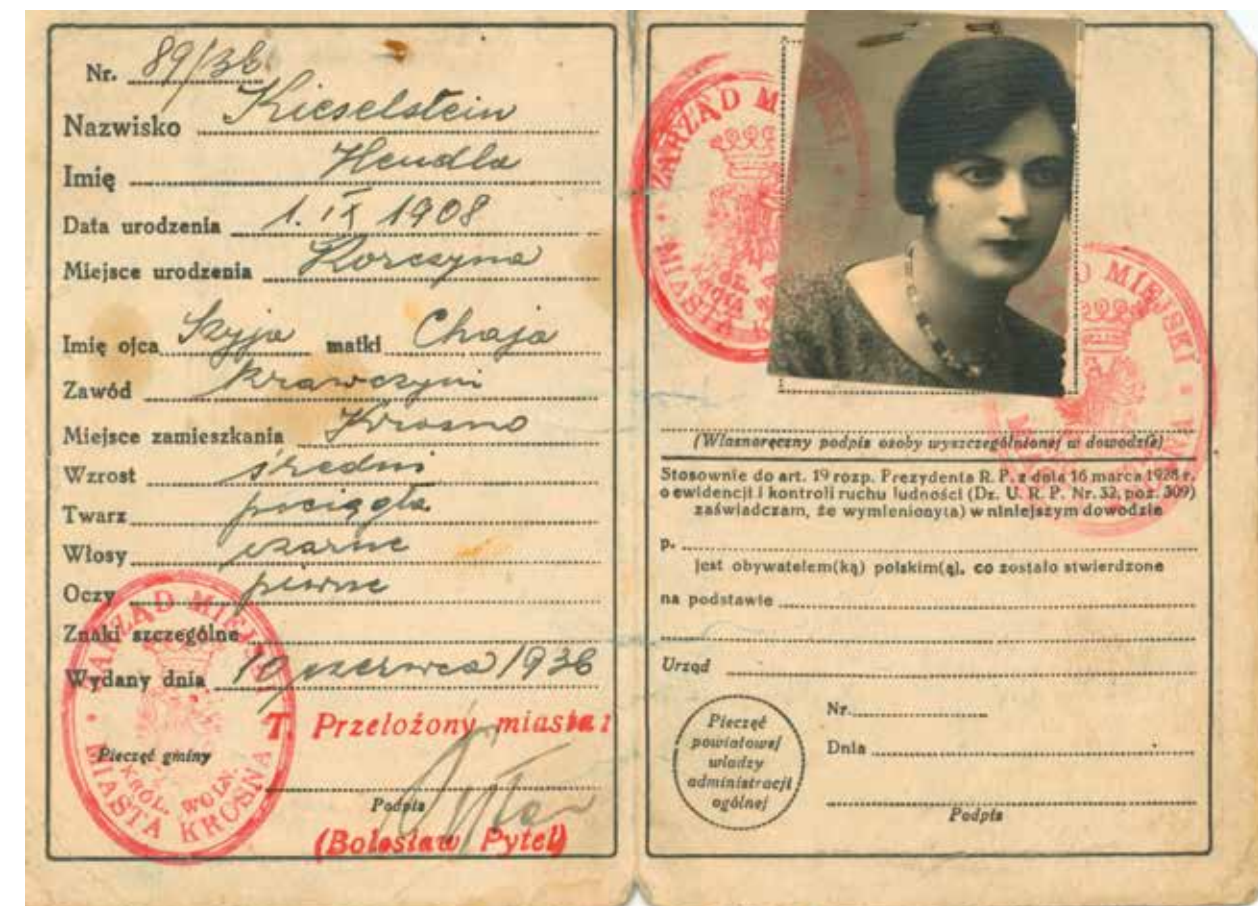 Nr. 89/36.
Nazwisko Kieselstein
Imię Hendla
Data urodzenia 1. IX 1908
Miejsce urodzenia Korczyna
Imię ojca Szyja matki Chaja
Zawód krawczyni
Miejsce zamieszkania Krosno
Wzrost średni
Twarz pociągła
Włosy czarne
Oczy piwne
Znaki szczególne
Wydany dnia 10 czerwca 1936
T. Przełożony miasta:
Pieczęć gminy
Podpis
(Bolesław Pytel)
ZARZĄD MIEJSKI
KRÓL. WOLN.
MIASTA KROSNA
ZARZĄD MIEJSKI
(Własnoręczny podpis osoby wyszczególnionej w dowodzie)
Stosownie do art. 19 rozp. Prezydenta R. P. z dnia 16 marca 1928 r.
o ewidencji i kontroli ruchu ludności (Dz. U. R. P. Nr. 32, poz. 309)
zaświadczam, że wymieniony(a) w niniejszym dowodzie
p.
jest obywatelem(ką) polskim(ą), co zostało stwierdzone
na podstawie
p.
Urząd
Pieczęć
powiatowej
władzy
administracji
ogólnej
Nr.
Dnia
Podpis